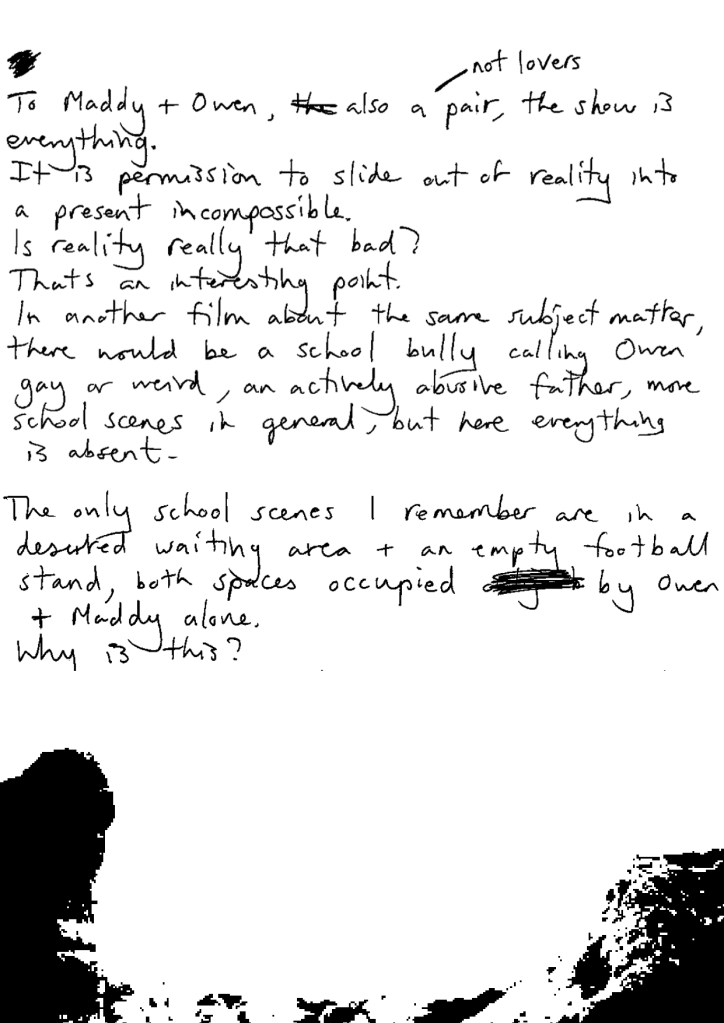 not lovers
To Maddy + Owen, the also a pair, the show is
everything.
It is permission to slide out of reality into
a present incompossible.
Is reality really that bad?
Thats an interesting point.
In another film about the same subject matter,
there would be a school bully calling Owen
gay or weird, an actively abusive father, more
school scenes in general, but here everything
is absent-
The only school scenes I remember are in a
deserted waiting area + an empty football
stand, both spaces occupied by Owen
+ Maddy alone.
Why is this?